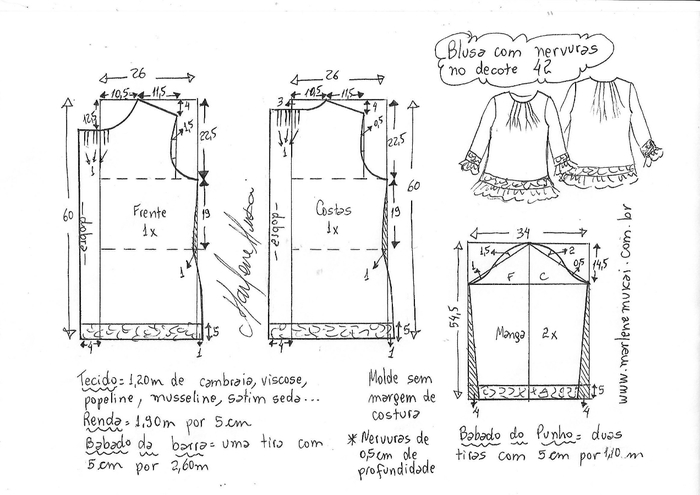 Blusa com nervuras
no decote 42
26
10,5
11,5
4
12,5
1,5
22,5
1
60
Frente
1x
19
-dobra-
1
5
4
1
26
10,5
11,5
3
4
0,5
22,5
1
60
Costas
1x
19
-dobra-
1
5
4
1
Marlene Mukai
34
1,5
2
1
0,5
14,5
F
C
54,5
Manga
2x
5
4
4
www.marlenemukai.com.br
Tecido= 1,20m de cambraia, viscose,
popeline, musseline, satim seda...
Renda= 1,90m por 5 cm
Babado da barra= uma tira com
5 cm por 2,60m
Molde sem
margem de
costura
* Nervuras de
0,5cm de
profundidade
Babado do Punho= duas
tiras com 5 cm por 1,10 m